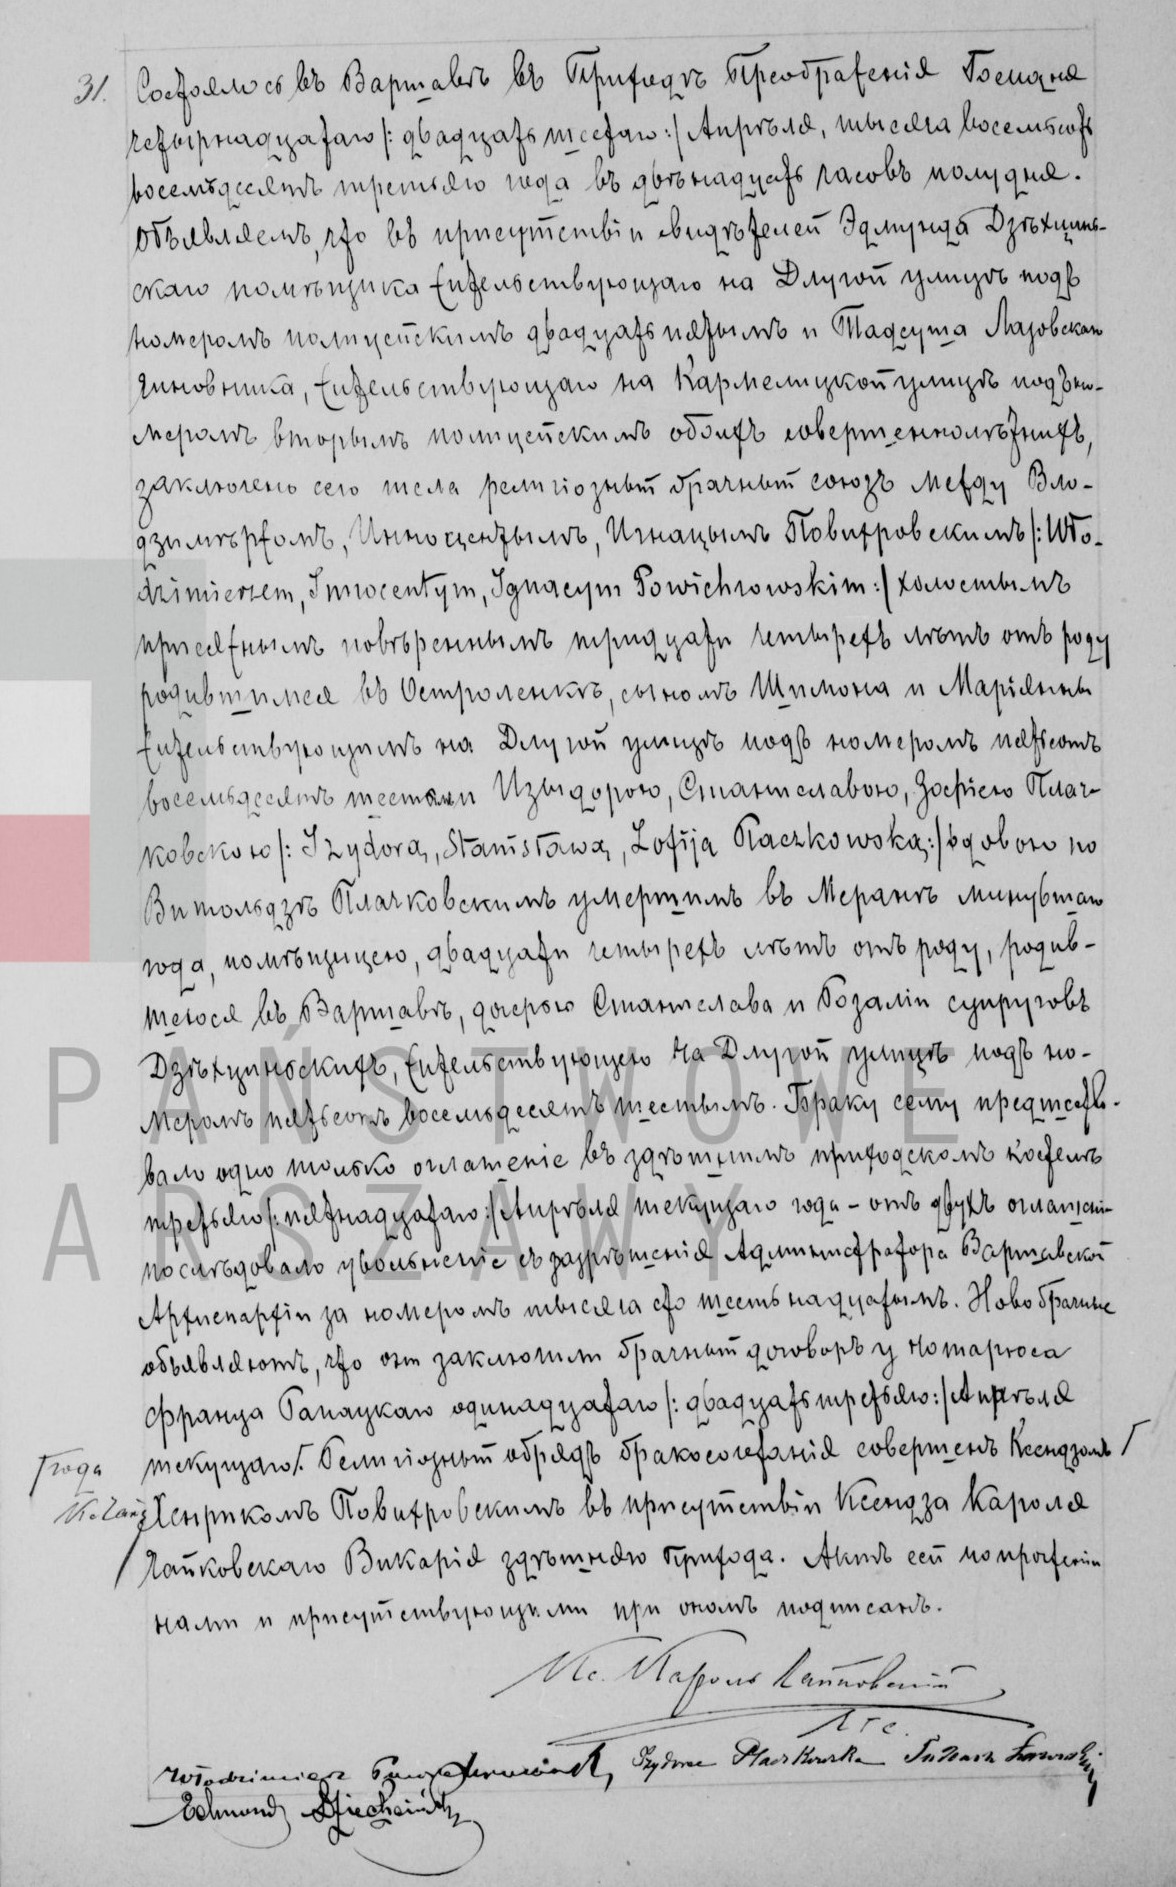 31.
Состоялось въ Варшавѣ въ Приходѣ Преображенія Господня
четырнадцатаго /: двадцать шестаго :/ Апрѣля, тысяча восемьсотъ
восемьдесятъ третьяго года въ двѣнадцать часовъ полудня.
Объявляемъ, что въ присутствіи свидѣтелей Эдмунда Дзѣхцинь-
скаго помѣщика жительствующаго на Длугой улицѣ подъ
номеромъ полицейскимъ двадцать пятымъ и Тадеуша Лазовскаго
чиновника, жительствующаго на Кармелицкой улицѣ подъ но-
меромъ вторымъ полицейскимъ обоихъ совершеннолѣтнихъ,
заключено сего числа религіозный брачный союзъ между Вло-
дзимѣржомъ, Инноцентымъ, Игнацымъ Повихровскимъ /: Wło-
dzimierzem, Innocentym, Ignacym Powichrowskim :/ холостымъ
присяжнымъ повѣреннымъ тридцати четырехъ лѣтъ отъ роду
родившимся въ Остроленкѣ, сыномъ Шимона и Маріянны
жительствующимъ на Длугой улицѣ подъ номеромъ пятьсотъ
восемьдесятъ шестымъ Изыдорою, Станиславою, Зофіею Плач-
ковскою /: Izydorą, Stanisławą, Zofiją Płaczkowską :/ вдовою по
Витольдзѣ Плачковскимъ умершимъ въ Меранѣ минувшаго
года, помѣщицею, двадцати четырехъ лѣтъ отъ роду, родив-
шеюся въ Варшавѣ, дочерью Станислава и Розаліи супруговъ
Дзѣхциньскихъ, жительствующею на Длугой улицѣ подъ но-
меромъ пятьсотъ восемьдесятъ шестымъ. Браку сему предшество-
вало одно только оглашеніе въ здѣшнемъ приходскомъ костелѣ
третьяго /: пятнадцатаго :/ Апрѣля текущаго года – отъ двухъ оглашеній
послѣдовало увольненіе съ разрѣшенія Администратора Варшавской
Архиепархіи за номеромъ тысяча сто шестьнадцатымъ. Новобрачные
объявляютъ, что они заключили брачный договоръ у Нотаріюса
Франца Рапацкаго одинадцатаго /: двадцать третьяго :/ Апрѣля
текущаго Г. Религіозный обрядъ бракосочетанія совершенъ Ксендзомъ Г
Г года
Хенрикомъ Повихровскимъ въ присутствіи Ксендза Кароля
Чайковскаго Викарія здѣшняго Прихода. Актъ сей по прочтеніи
нами и присутствующими при ономъ подписанъ.
Кс. Кароль Чайковскій
Włodzimierz Powichrowski, Izydora Płaczkowska Tadeusz Łazowski
Edmund Dziechciński